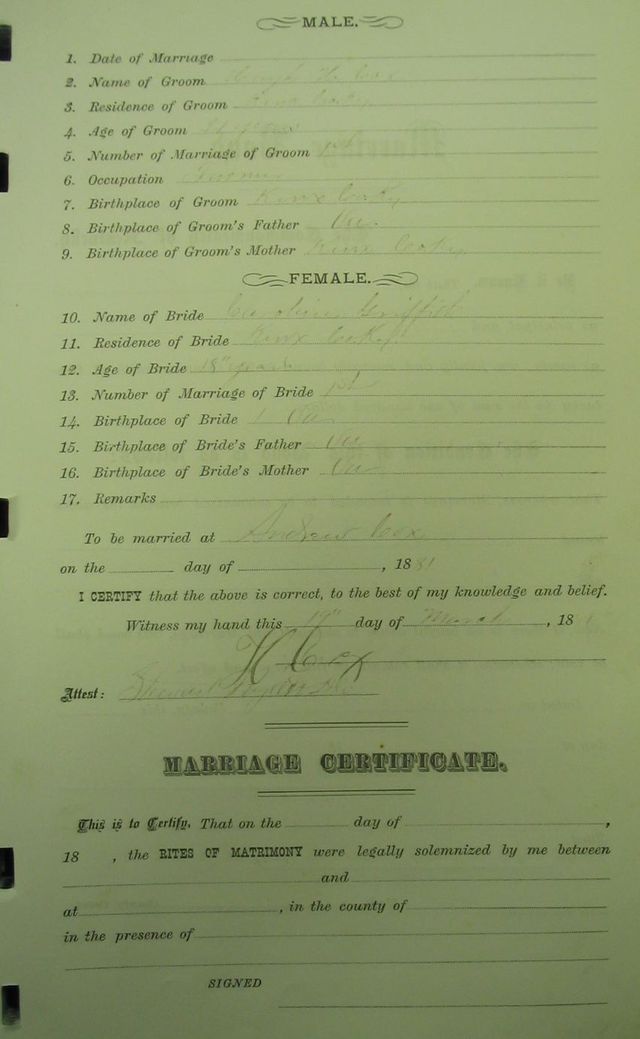 MALE.
1. Date of Marriage
2. Name of Groom Hugh H. Cox
3. Residence of Groom Knox County
4. Age of Groom years
5. Number of Marriage of Groom 1st
6. Occupation Farmer
7. Birthplace of Groom Knox County
8. Birthplace of Groom's Father Va
9. Birthplace of Groom's Mother Knox County
FEMALE.
10. Name of Bride Caroline Griffith
11. Residence of Bride Knox County
12. Age of Bride 18 years
13. Number of Marriage of Bride 1st
14. Birthplace of Bride Va
15. Birthplace of Bride's Father Va
16. Birthplace of Bride's Mother Va
17. Remarks
To be married at Andrew Cox
on the day of , 1881
I CERTIFY that the above is correct, to the best of my knowledge and belief.
Witness my hand this 19" day of March , 18
H Cox
Attest:
MARRIAGE CERTIFICATE.
This is to Certify, That on the day of ,
18 , the RITES OF MATRIMONY were legally solemnized by me between
and
at , in the county of
in the presence of
SIGNED